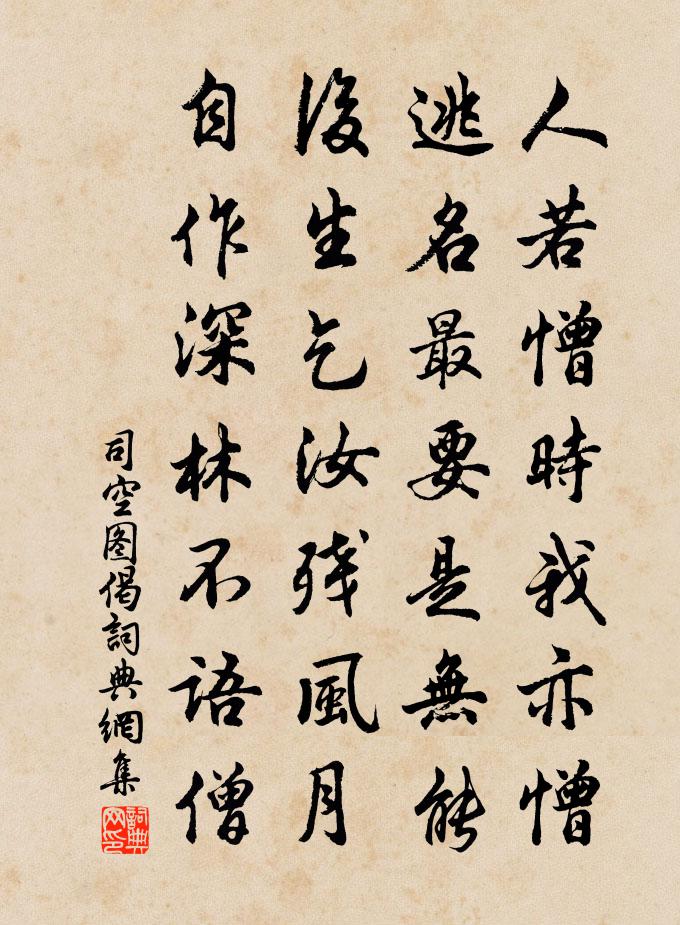 人若憎時我亦憎
逃名最要是無能
後生乞汝残風月
自作深林不語僧
司空图偈詞典網集
詞典网印